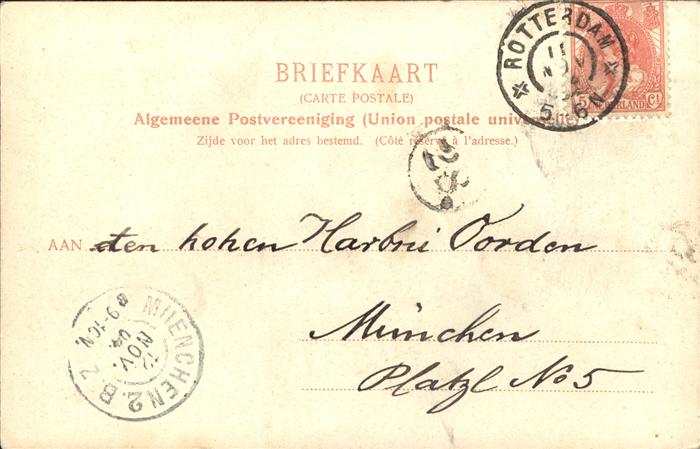 BRIEFKAART
(CARTE POSTALE)
Algemeene Postvereeniging (Union postale universelle)
Zijde voor het adres bestemd. (Côté réservé à l'adresse.)
ROTTERDAM
11
NOV
5-6N
5 NEDERLAND Ct
AAN den hohen Harbni Oorden
München
Platzl No 5
MUENCHEN 2. B Z
9-10N.
12
NOV.
04